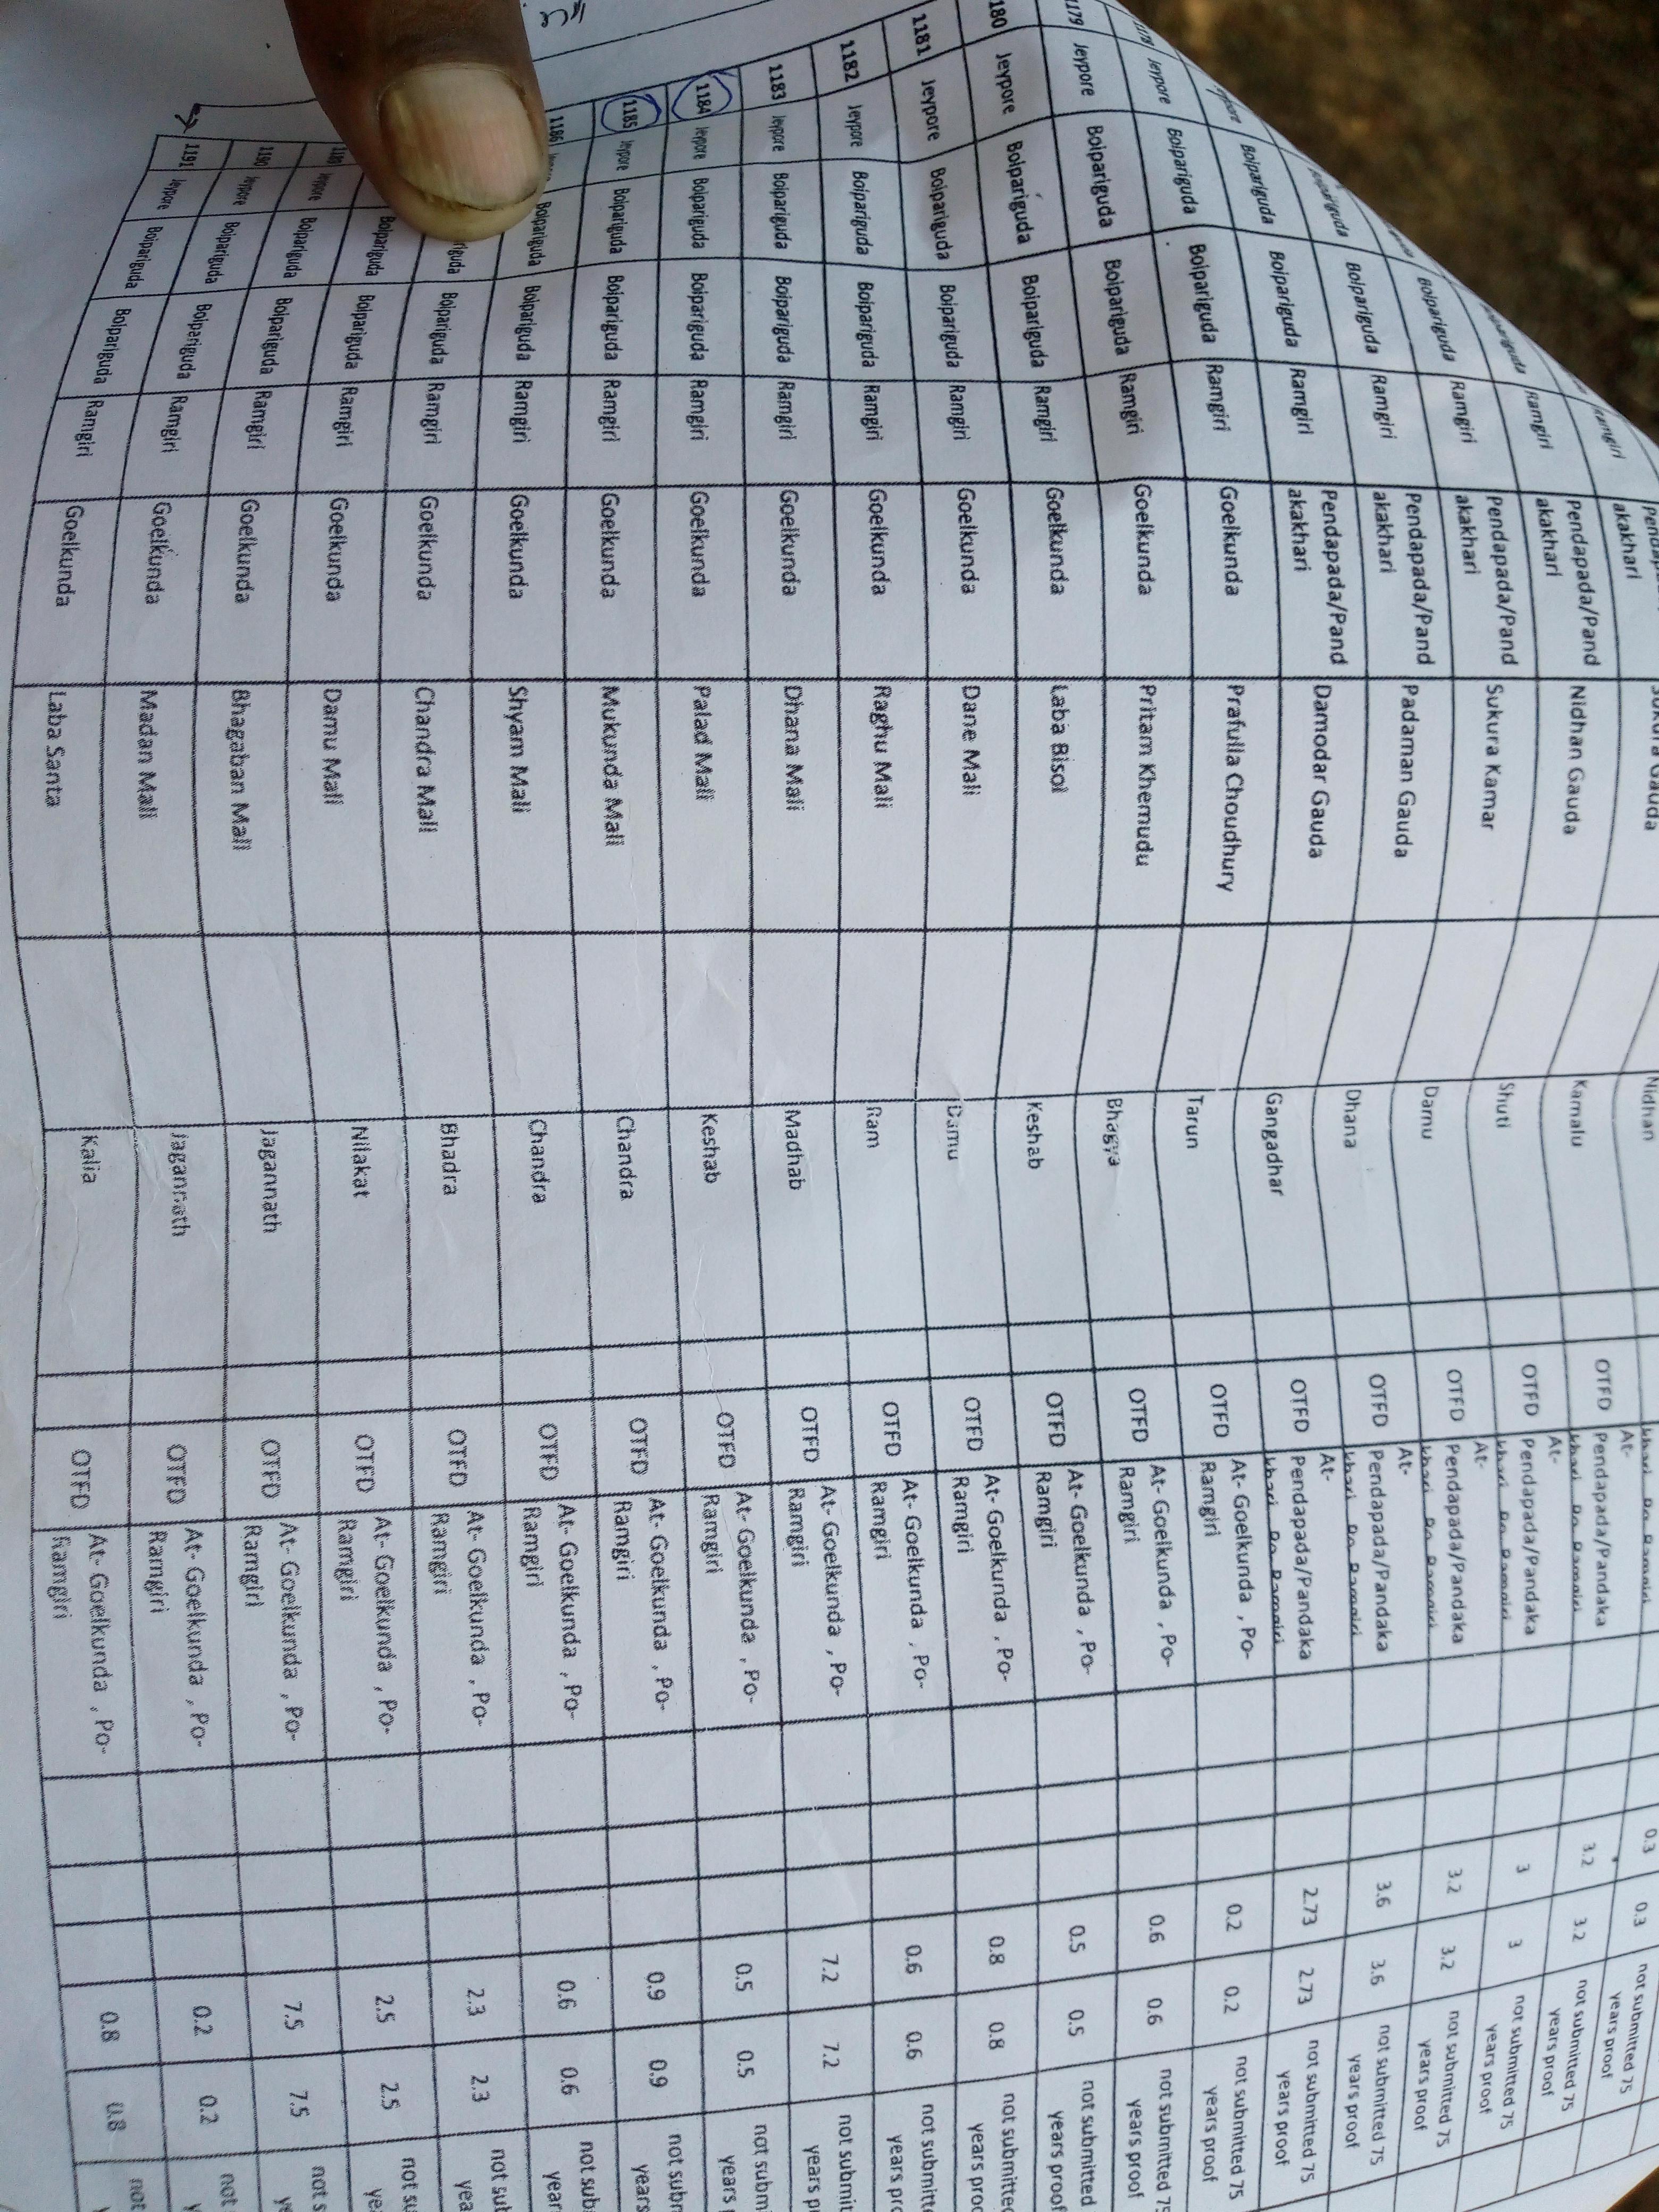 Nidhan 0.3 0.3 not submitted 75
years proof
Ramgiri akakhari Sukura Gauda Kamalu OTFD At-
Pendapada/Pandaka 3.2 3.2 not submitted 75
years proof
Ramgiri Pendapada/Pand
akakhari Nidhan Gauda Shuti OTFD At-
Pendapada/Pandaka 3 3 not submitted 75
years proof
Boipariguda Ramgiri Pendapada/Pand
akakhari Sukura Kamar Damu OTFD At-
Pendapada/Pandaka 3.2 3.2 not submitted 75
years proof
Boipariguda Boipariguda Ramgiri Pendapada/Pand
akakhari Padaman Gauda Dhana OTFD At-
Pendapada/Pandaka 3.6 3.6 not submitted 75
years proof
Jeypore Boipariguda Boipariguda Ramgiri Pendapada/Pand
akakhari Damodar Gauda Gangadhar OTFD At-
Pendapada/Pandaka
khari Po Ramgiri 2.73 2.73 not submitted 75
years proof
1178 Jeypore Boipariguda Boipariguda Ramgiri Goelkunda Prafulla Choudhury Tarun OTFD At- Goelkunda , Po-
Ramgiri 0.2 0.2 not submitted 75
years proof
1179 Jeypore Boipariguda Boipariguda Ramgiri Goelkunda Pritam Khemudu Bhagya OTFD At- Goelkunda , Po-
Ramgiri 0.6 0.6 not submitted 75
years proof
180 Jeypore Boipariguda Boipariguda Ramgiri Goelkunda Laba Bisoi Keshab OTFD At- Goelkunda , Po-
Ramgiri 0.5 0.5 not submitted
years proof
1181 Jeypore Boipariguda Boipariguda Ramgiri Goelkunda Dane Mali Damu OTFD At- Goelkunda , Po-
Ramgiri 0.8 0.8 not submitted
years proo
1182 Jeypore Boipariguda Boipariguda Ramgiri Goelkunda Raghu Mali Ram OTFD At- Goelkunda , Po-
Ramgiri 0.6 0.6 not submitte
years pro
1183 Jeypore Boipariguda Boipariguda Ramgiri Goelkunda Dhana Mali Madhab OTFD At- Goelkunda , Po-
Ramgiri 7.2 7.2 not submit
years p
1184 Jeypore Boipariguda Boipariguda Ramgiri Goelkunda Palad Mali Keshab OTFD At- Goelkunda , Po-
Ramgiri 0.5 0.5 not subm
years
1185 Jeypore Boipariguda Boipariguda Ramgiri Goelkunda Mukunda Mali Chandra OTFD At- Goelkunda , Po-
Ramgiri 0.9 0.9 not subm
years
1186 Boipariguda Boipariguda Ramgiri Goelkunda Shyam Mali Chandra OTFD At- Goelkunda , Po-
Ramgiri 0.6 0.6 not sub
year
riguda Boipariguda Ramgiri Goelkunda Chandra Mali Bhadra OTFD At- Goelkunda , Po-
Ramgiri 2.3 2.3 not sub
yea
Boipariguda Boipariguda Ramgiri Goelkunda Damu Mali Nilakat OTFD At- Goelkunda , Po-
Ramgiri 2.5 2.5 not su
ye
Jeypore Boipariguda Boipariguda Ramgiri Goelkunda Bhagaban Mali Jagannath OTFD At- Goelkunda , Po-
Ramgiri 7.5 7.5 not s
ye
1190 Jeypore Boipariguda Boipariguda Ramgiri Goelkunda Madan Mali Jagannath OTFD At- Goelkunda , Po-
Ramgiri 0.2 0.2 not
y
1191 Jeypore Boipariguda Boipariguda Ramgiri Goelkunda Laba Santa Kalia OTFD At- Goelkunda , Po-
Ramgiri 0.8 0.8 not